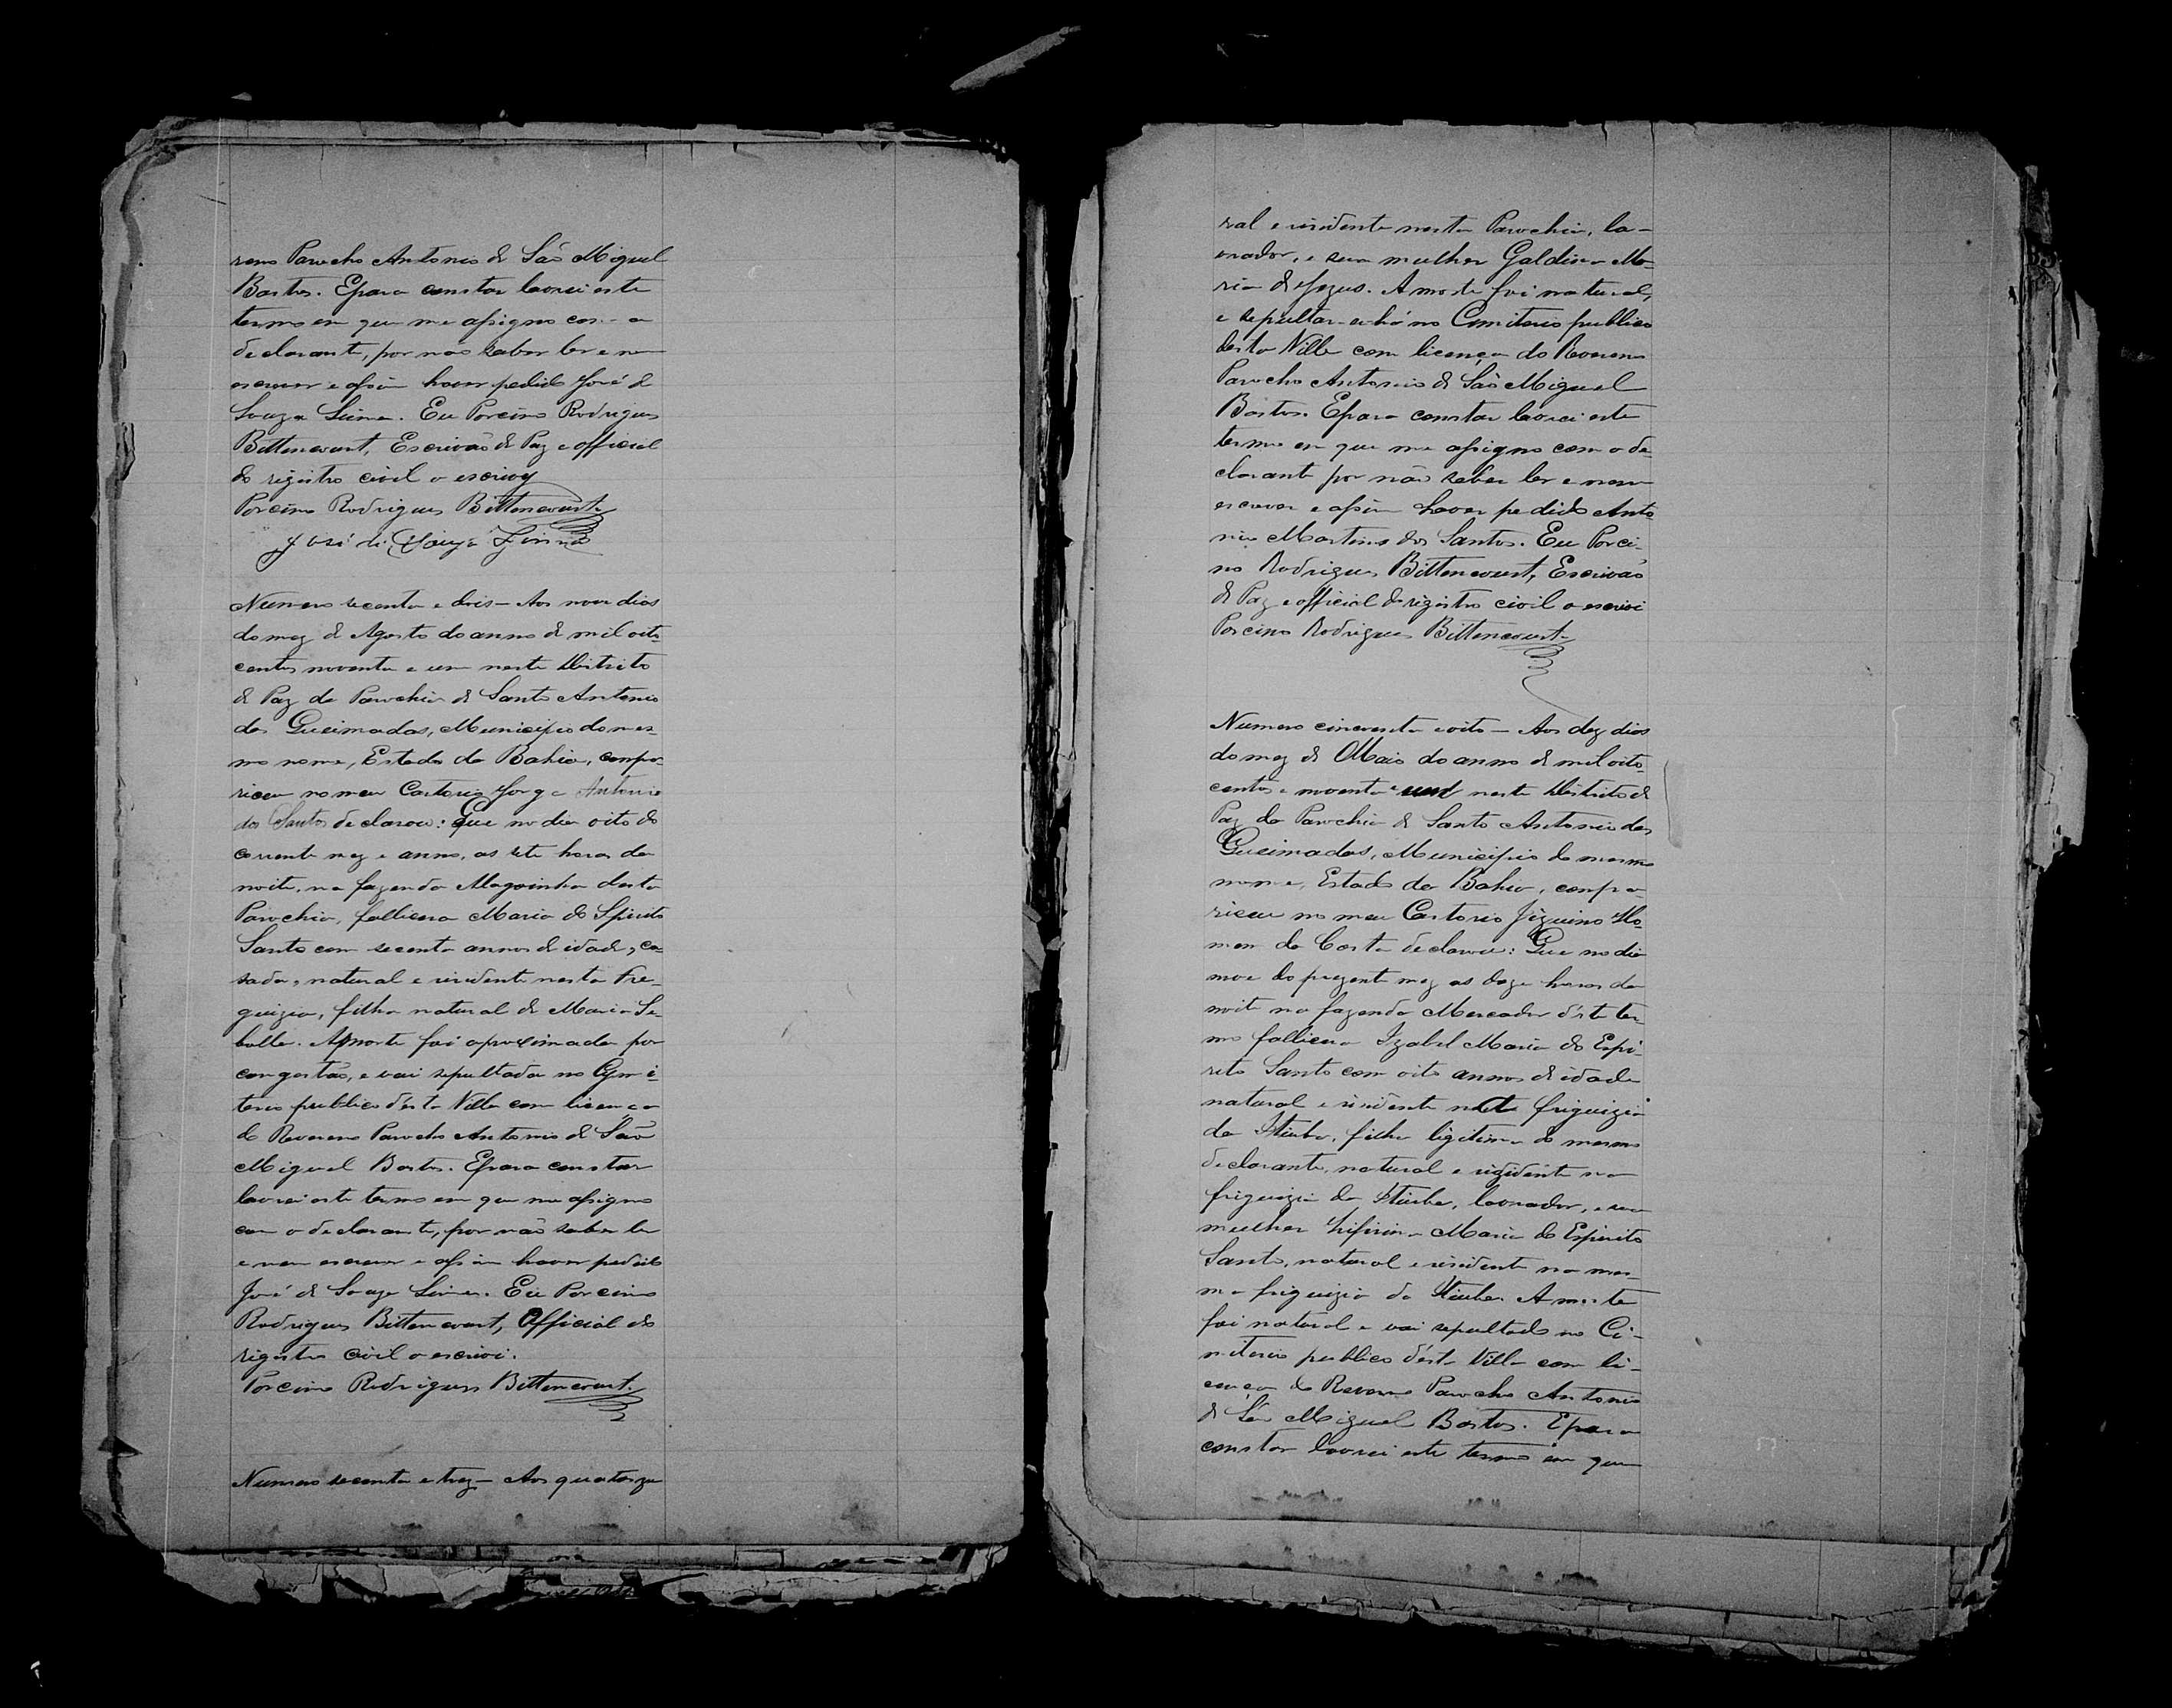 reno Parocho Antonio de São Miguel
Bastos. E para constar lavrei este
termo em que me assigno com o
declarante, por não saber ler e nem
escrever e assim haver pedido José de
Souza Lima. Eu Porcino Rodrigues
Bittencourt, Escrivão de Paz e official
do registro civil o escrivy
Porcino Rodrigues Bittencourt
José de Souza Lima
Numero secenta e dois – Aos nove dias
do mez de Agosto do anno de mil oito
centos noventa e um neste Districto
de Paz da Parochia de Santo Antonio
das Queimadas, Municipio do mes-
mo nome, Estado da Bahia, compa-
riceu no meu Cartorio Jorge Antonio
dos Santos declarou: Que no dia oito do
corrente mez e anno, as sete horas da
noite, na fazenda desta
Parochia, falliceu Maria do Spirito
Santo com secenta annos de idade, ca-
sada, natural e residente nesta Fre-
guizia, filha natural de Maria
A morte foi aproximada por
congestão, e vai sepultada no Cymi-
terio publico d'esta Villa com licença
do Revereno Parocho Antonio de São
Miguel Bastos. E para constar
lavrei este termo em que me assigno
com o declarante, por não saber ler
e nem escrever e assim haver pedido
José de Souza Lima. Eu Porcino
Rodrigues Bittencourt, Official do
registro civil o escrivi.
Porcino Rodrigues Bittencourt
Numero secenta e trez – Aos quatorze
ral e residente nesta Parochia, la-
vrador, e sua mulher Galdina Ma-
ria de Jezus. A morte foi natural,
e sepultar-se-há no Cemiterio publico
desta Villa com licença do Revereno
Parocho Antonio de São Miguel
Bastos. E para constar lavrei este
termo em que me assigno com o de-
clarante por não saber ler e nem
escrever e assim haver pedido Anto-
nio Martins dos Santos. Eu Porci-
no Rodrigues Bittencourt, Escrivão
de Paz e official do registro civil o escrivi
Porcino Rodrigues Bittencourt
Numero cincoenta e oito – Aos dez dias
do mez de Maio do anno de mil oito-
centos e noventa e um neste Districto de
Paz da Parochia de Santo Antonio das
Queimadas, Municipio do mesmo
nome, Estado da Bahia, compa-
riceu no meu Cartorio Ho-
mem da Costa declarou: Que no dia
nove do prezente mez as doze horas da
noite na fazenda Mercador d'este ter-
mo falliceu Izabel Maria do Espi-
rito Santo com oito annos de idade
natural e residente nesta friguizia
da Itiuba, filha ligitima do mesmo
declarante, natural e rezidente na
friguizia da Itiuba, lavrador, e sua
mulher Maria do Espirito
Santo, natural e residente na mes-
ma friguizia da Itiuba. A morte
foi natural e vai sepultado no Ci-
miterio publico d'esta Villa com li-
cença do Revereno Parocho Antonio
de São Miguel Bastos. E para
constar lavrei este termo em que